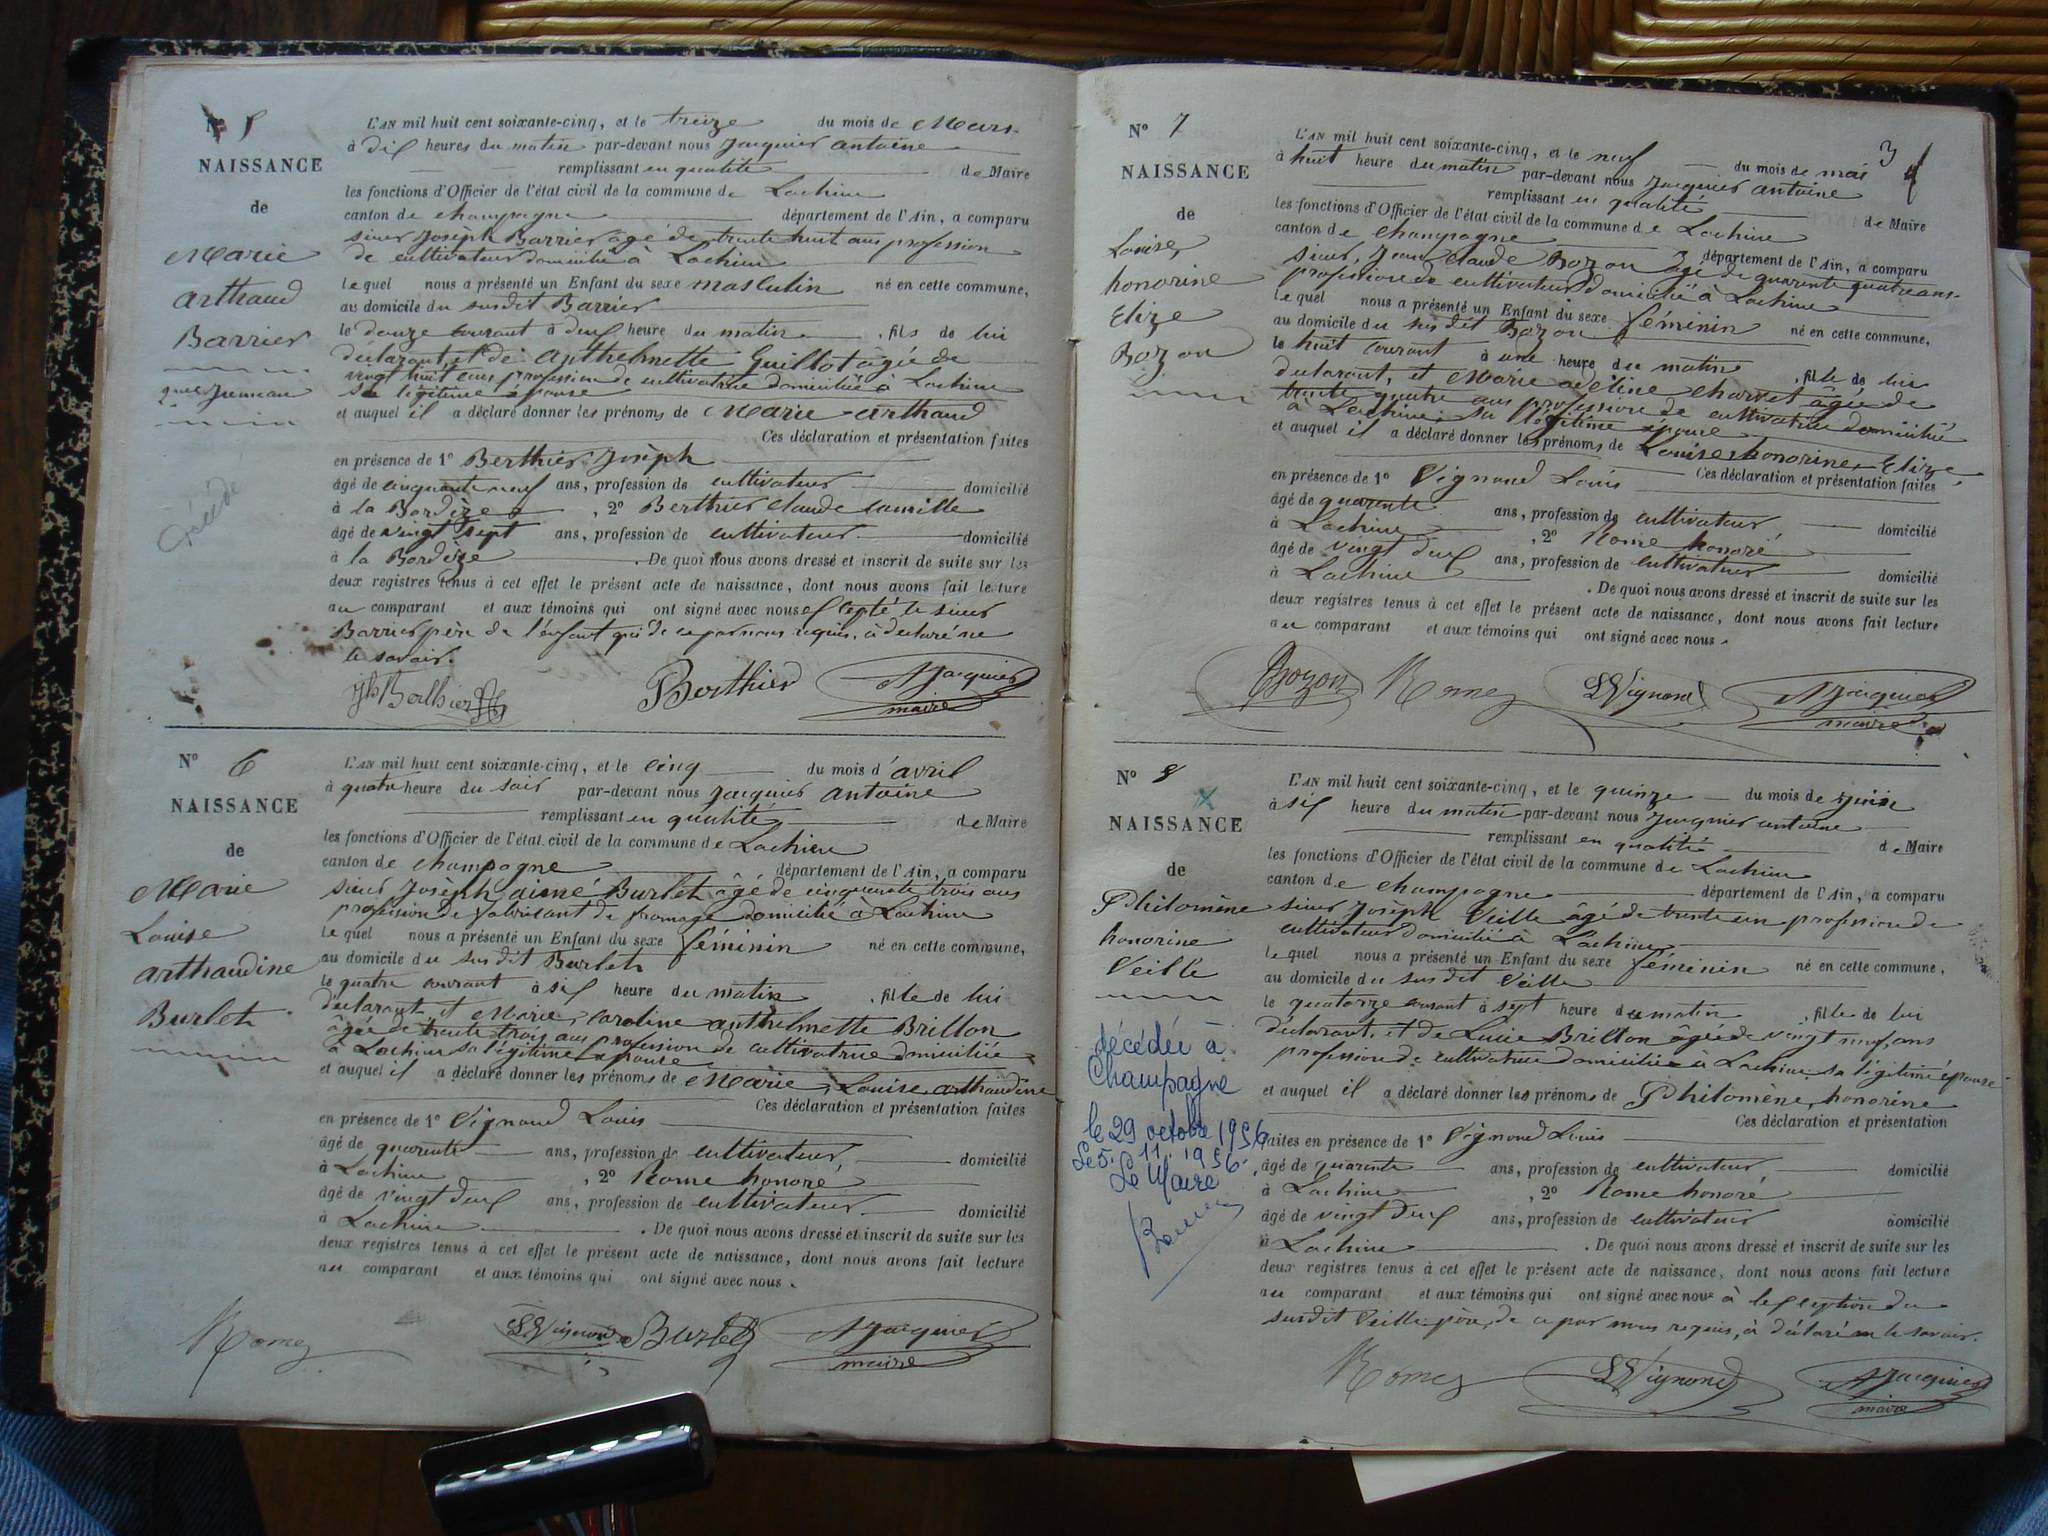 5
NAISSANCE
de
Marie
arthaud
Barrier
L'AN mil huit cent soixante-cinq, et le treize du mois de Mars
à dix heures du matin par-devant nous Jacquier antoine
remplissant en qualité de Maire
les fonctions d'Officier de l'état civil de la commune de Lochieu
canton de champagne département de l'Ain, a comparu
sieur Joseph Barrier âgé de trente huit ans profession
de cultivateur domicilié à Lochieu
lequel nous a présenté un Enfant du sexe masculin né en cette commune,
au domicile du susdit Barrier
le douze courant à deux heure du matin, fils de lui
déclarant, et de Anthelmette Guillot agée de
vingt huit ans profession de cultivatrice domiciliée à Lochieu
sa légitime épouse
et auquel il a déclaré donner les prénoms de Marie arthaud
Ces déclaration et présentation faites
en présence de 1º Berthier Joseph
âgé de cinquante neuf ans, profession de cultivateur domicilié
à la Bordèze, 2º Berthier claude camille
âgé de vingt sept ans, profession de cultivateur domicilié
à la Bordèze. De quoi nous avons dressé et inscrit de suite sur les
deux registres tenus à cet effet le présent acte de naissance, dont nous avons fait lecture
au comparant et aux témoins qui ont signé avec nous excepté le sieur
Barrier père de l'enfant qui de ce par nous requis, à déclaré ne
le savoir.
Jh Berthier Berthier A Jacquier
maire
Nº 6
NAISSANCE
de
Marie
Louise
arthaudine
Burlet
L'AN mil huit cent soixante-cinq, et le cinq du mois d'avril
à quatre heure du soir par-devant nous Jacquier antoine
remplissant en qualité de Maire
les fonctions d'Officier de l'état civil de la commune de Lochieu
canton de champagne département de l'Ain, a comparu
sieur Joseph aimé Burlet âgé de cinquante trois ans
profession de fabricant de fromage domicilié à Lochieu
lequel nous a présenté un Enfant du sexe féminin né en cette commune,
au domicile du susdit Burlet
le quatre courant à six heure du matin, fille de lui
déclarant, et Marie, caroline anthelmette Brillon
âgée de trente trois ans profession de cultivatrice domiciliée
à Lochieu sa légitime épouse
et auquel il a déclaré donner les prénoms de Marie, Louise arthaudine
Ces déclaration et présentation faites
en présence de 1º Vignond Louis
âgé de quarente ans, profession de cultivateur, domicilié
à Lochieu, 2º Rome honoré
âgé de vingt deux ans, profession de cultivateur domicilié
à Lochieu. De quoi nous avons dressé et inscrit de suite sur les
deux registres tenus à cet effet le présent acte de naissance, dont nous avons fait lecture
au comparant et aux témoins qui ont signé avec nous.
Rome LVignond Burlet A Jacquier
maire
3
Nº 7
NAISSANCE
de
Louise,
honorine
Elize
Bozon
L'AN mil huit cent soixante-cinq, et le neuf du mois de mai
à huit heure du matin par-devant nous Jacquier antoine
remplissant en qualité de Maire
les fonctions d'Officier de l'état civil de la commune de Lochieu
canton de champagne département de l'Ain, a comparu
sieur, Jean claude Bozon âgé de quarante quatre ans
profession de cultivateur domicilié à Lochieu
lequel nous a présenté un Enfant du sexe féminin né en cette commune,
au domicile du susdit Bozon
le huit courant à une heure du matin, fille de lui
déclarant, et Marie adeline charvet âgée de
trente quatre ans profession de cultivatrice domiciliée
à Lochieu, sa légitime épouse
et auquel il a déclaré donner les prénoms de Louise, honorine, Elize,
Ces déclaration et présentation faites
en présence de 1º Vignond Louis
âgé de quarente ans, profession de cultivateur domicilié
à Lochieu, 2º Rome honoré
âgé de vingt deux ans, profession de cultivateur domicilié
à Lochieu. De quoi nous avons dressé et inscrit de suite sur les
deux registres tenus à cet effet le présent acte de naissance, dont nous avons fait lecture
au comparant et aux témoins qui ont signé avec nous.
Bozon Rome LVignond A Jacquier
maire
Nº 8
NAISSANCE
de
Philomène
honorine
Veille
décédée à
Champagne
le 29 octobre 1956
Le 5. 11. 1956.
Le Maire
L'AN mil huit cent soixante-cinq, et le quinze du mois de juin
à six heure du matin par-devant nous Jacquier antoine
remplissant en qualité de Maire
les fonctions d'Officier de l'état civil de la commune de Lochieu
canton de champagne département de l'Ain, a comparu
sieur Joseph Veille âgé de trente un profession de
cultivateur domicilié à Lochieu
lequel nous a présenté un Enfant du sexe féminin né en cette commune,
au domicile du susdit Veille
le quatorze courant à sept heure du matin, fille de lui
déclarant, et de Lucie Brillon âgée de vingt neuf, ans
profession de cultivatrice domiciliée à Lochieu sa légitime épouse
et auquel il a déclaré donner les prénoms de Philomène, honorine
Ces déclaration et présentation
faites en présence de 1º Vignond Louis
âgé de quarente ans, profession de cultivateur domicilié
à Lochieu, 2º Rome honoré
âgé de vingt deux ans, profession de cultivateur domicilié
à Lochieu. De quoi nous avons dressé et inscrit de suite sur les
deux registres tenus à cet effet le présent acte de naissance, dont nous avons fait lecture
au comparant et aux témoins qui ont signé avec nous à l'exception du
susdit Veille père, de ce par nous requis, à déclaré ne le savoir.
Rome LVignond A Jacquier
maire